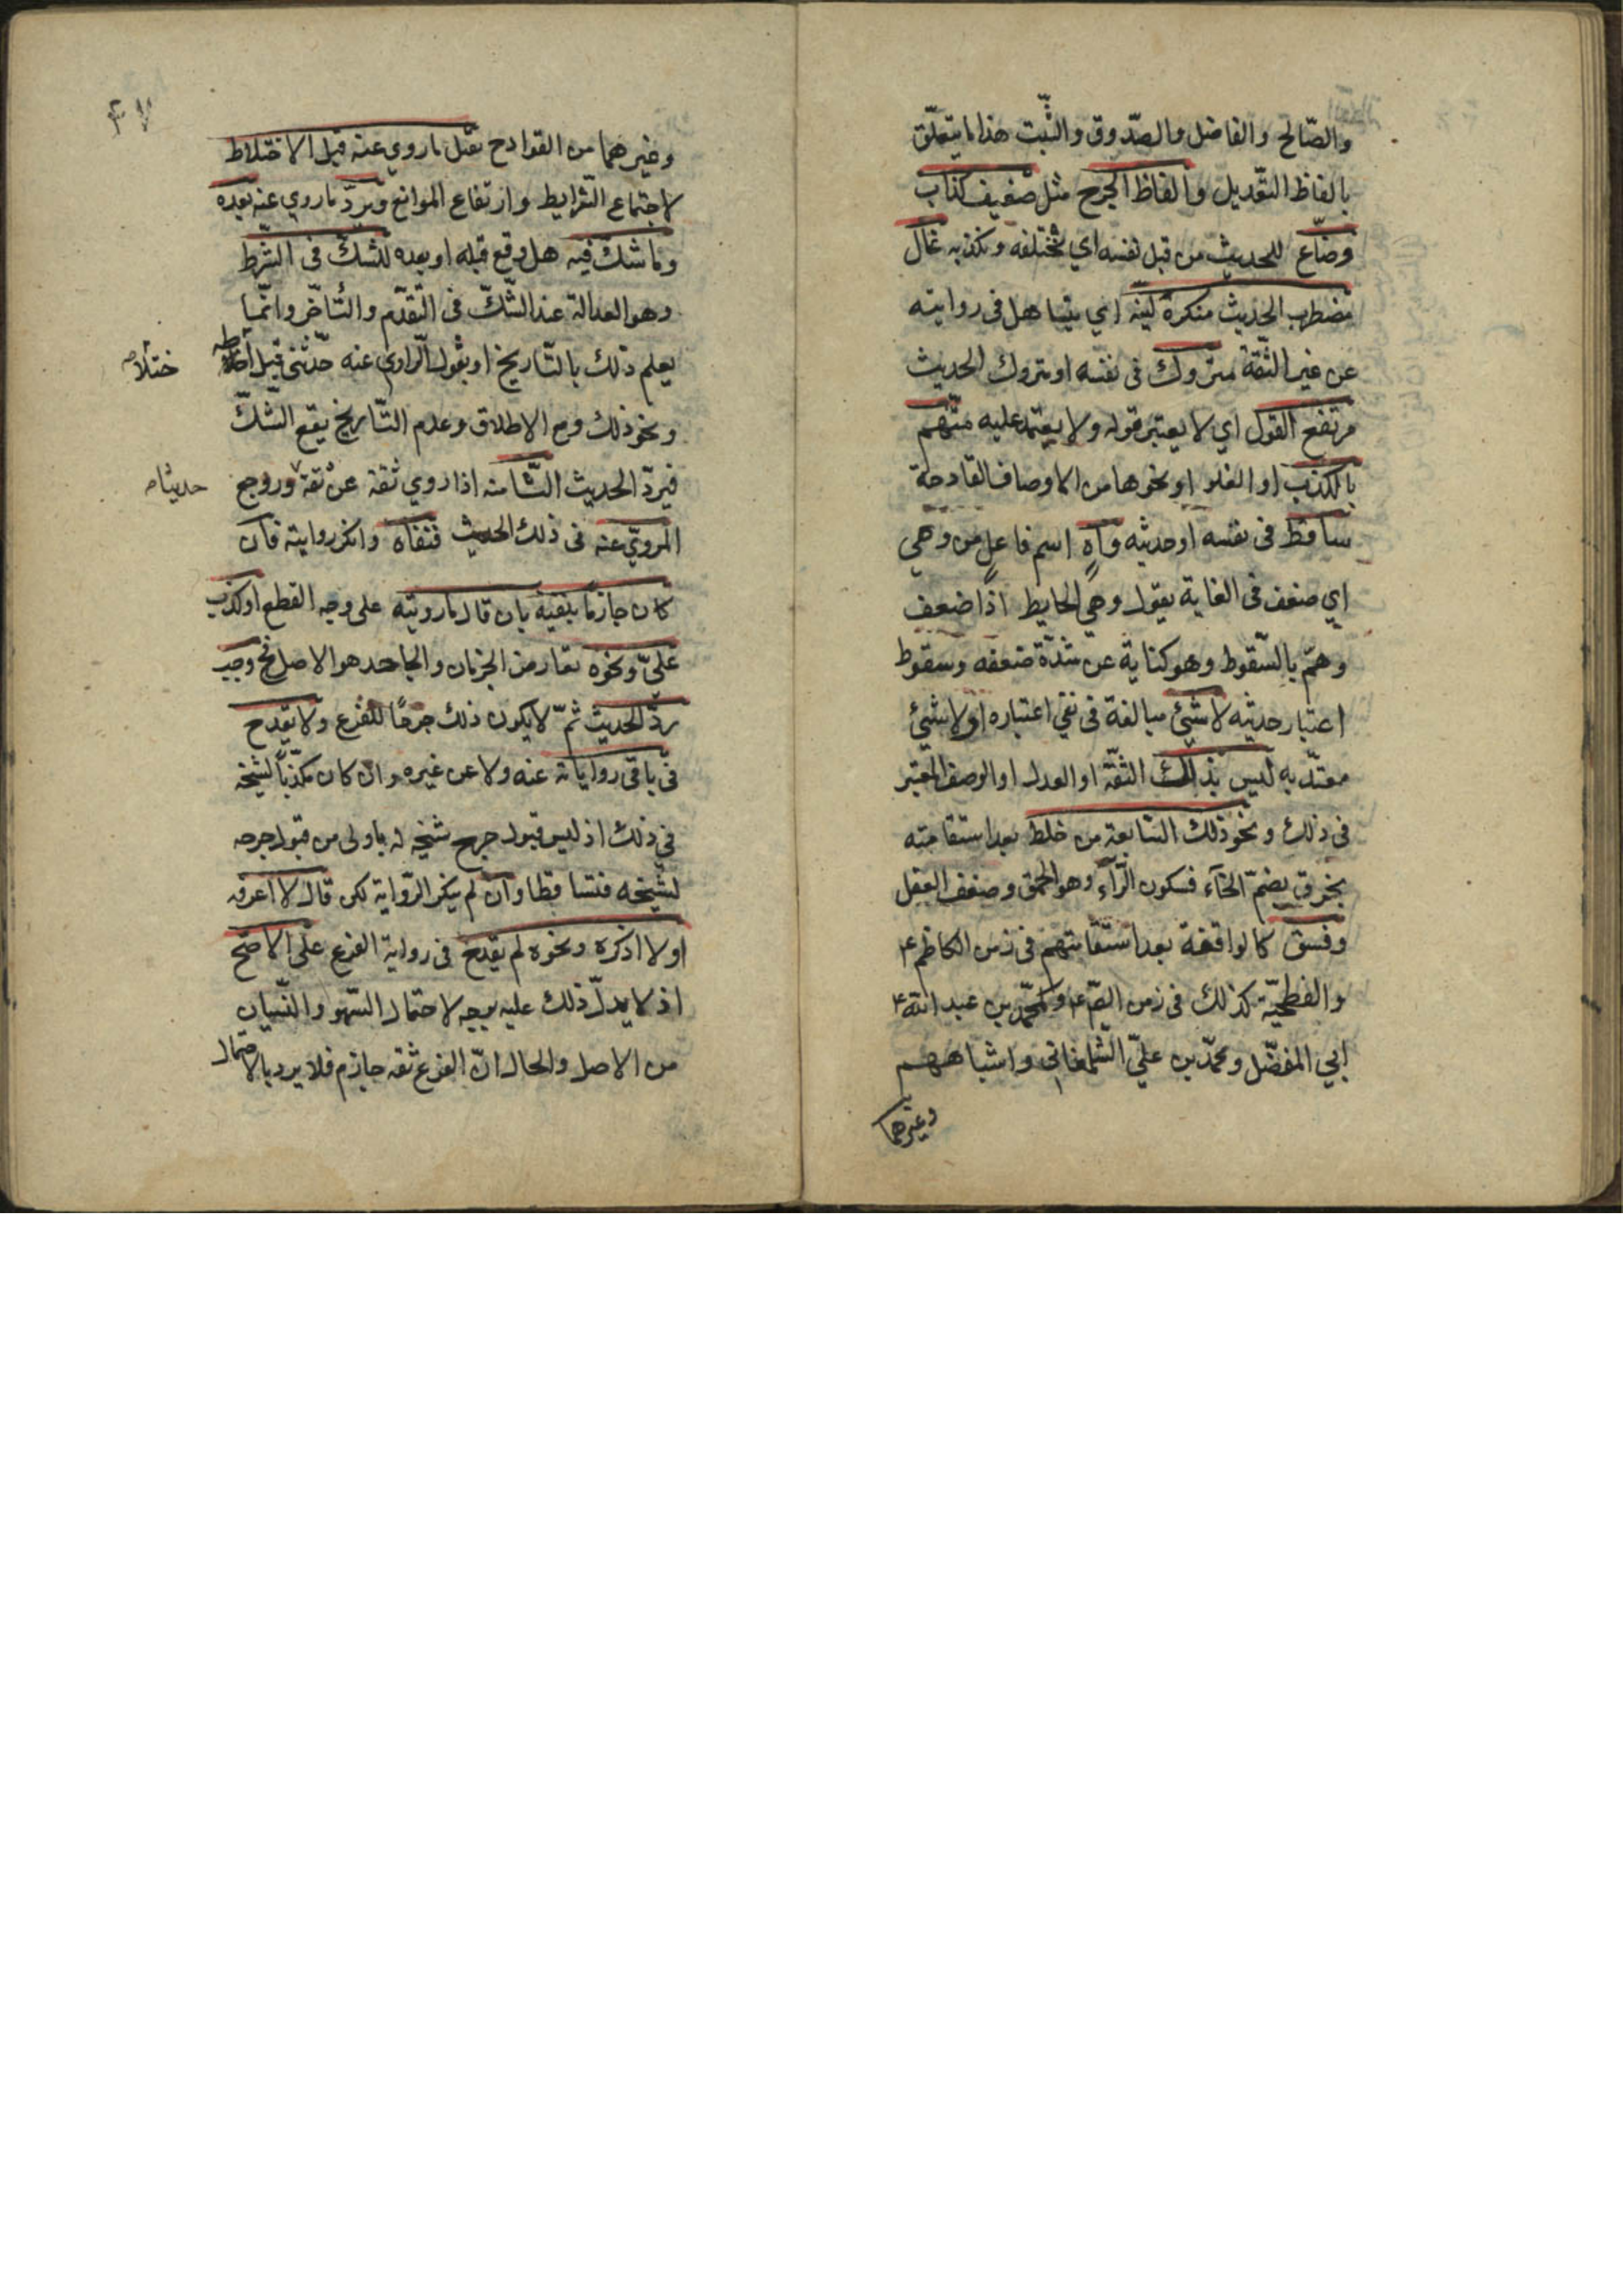 والصّالح والفاضل والصّدوق والثّبت هذا ما يتعلّق
بالفاظ التعّديل والفاظ الجرح مثل ضعيف كذاب
وضّاع للحديث من قبل نفسه اي يختلقه ويكذبه غال
مضطرب الحديث منكره ليّنه اي يتساهل في روايته
عن غير الثّقة متروك في نفسه او متروك الحديث
مرتفع القول اي لا يعتبر قوله ولا يعتمد عليه متّهم
بالكذب او الغلو او نحوها من الاوصاف القادحة
ساقط في نفسه او حديثه واهٍ اسم فاعلٍ من وهي
اي ضعف في الغاية يقول وهي الحايط اذا ضعف
وهمّ بالسّقوط وهو كناية عن شدّة ضعفه وسقوط
اعتبار حديثه لا شيئ مبالغة في نفي اعتباره او لا شيئ
معتدّ به ليس بذلك الثقّة او العدل او الوصف المعتبر
في ذلك ونحو ذلك السّابعة من خلط بعد استقامته
بخرق بضمّ الخآء فسكون الرّآء وهو الحمق وضعف العقل
وفسق كالواقفة بعد استقامتهم في زمن الكاظم ع
والفطحيّة كذلك في زمن الصّ ع وكمحمّد بن عبد الله
ابي المفضّل ومحمّد بن عليّ الشّلمغاني واشباههم
وغيرهما
٤٧
وغيرهما من القوادح يقبل ما روي عنه قبل الاختلاط
لاجتماع الشّرايط وارتفاع الموانع ويردّ ما روي عنه بعده
وما شكّ فيه هل وقع قبله او بعده للشكّ في الشّرط
وهو العدالة عند الشّكّ في التّقدّم والتّأخّر وانمّا
يعلم ذلك بالتّاريخ او بقول الرّاوي عنه حدّثني قبل
ختلا
ونحو ذلك ومع الاطلاق وعدم التّاريخ يقع الشّكّ
فيردّ الحديث الثّامنة اذا روي ثقة عن ثقة وروجع
حديثا
المرويّ عنه في ذلك الحديث فنفاه وانكر روايته فان
كان جازماً بنفيه بان قال ما رويته على وجه القطع او كذب
عليّ ونحوه تعارض الجزمان والجاحد هو الاصل فح وجب
ردّ الحديث ثمّ لا يكون ذلك جرحًا للفرع ولا يقدح
في باقي رواياته عنه ولا عن غيره وان كان مكذّباً لشيخه
في ذلك اذ ليس قبول جرح شيخه له باولى من قبول جرحه
لشيخه فتساقطا وان لم ينكر الرّواية لكن قال لا اعرفه
او لا اذكره ونحوه لم يقدح في رواية الفرع على الاصحّ
اذ لا يدلّ ذلك عليه بوجه لاحتمال السّهو والنّسيان
من الاصل والحال انّ الفرع ثقه جازم فلا يرد بالاحتمال